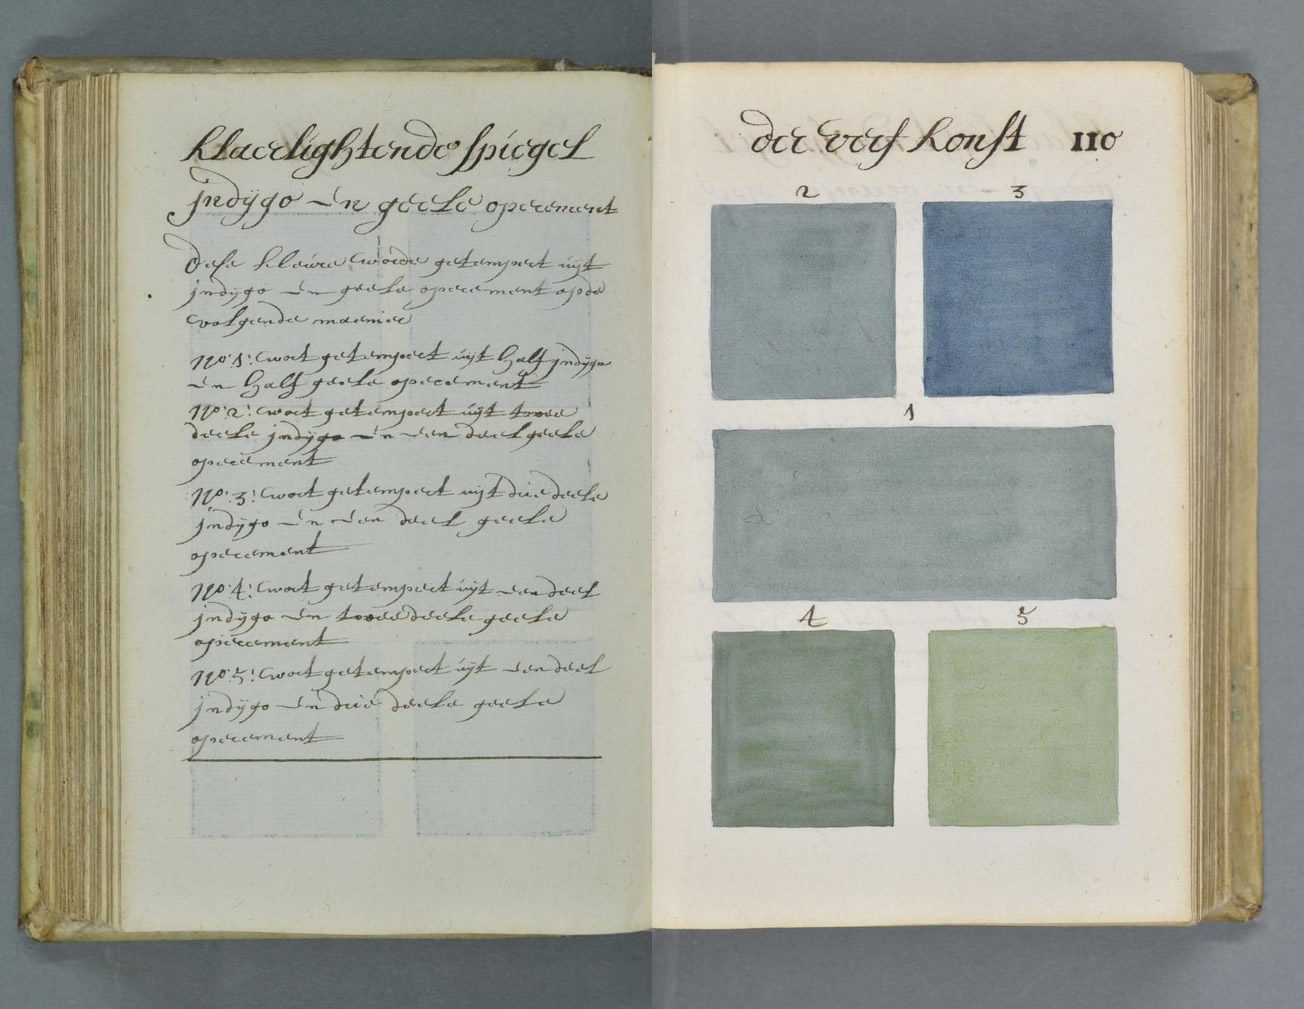 klaerlightende spiegel
jndÿgo en geele operement
dese kleúre worde getempert úÿt
jndÿgo en geele operement op de
volgende manier
No: 1: wort getempert úÿt half jndÿgo
en half geele operement
No: 2: wort getempert úÿt twee
deele jndÿgo en een deel geele
operement
No: 3: wort getempert uÿt drie deele
jndÿgo en een deel geele
operement
No: 4: wort getempert úÿt een deel
jndÿgo en twee deele geele
operement
No: 5: wort getempert úÿt een deel
jndÿgo en drie deele geele
operement
der verf konst 110
2 3
1
4 5